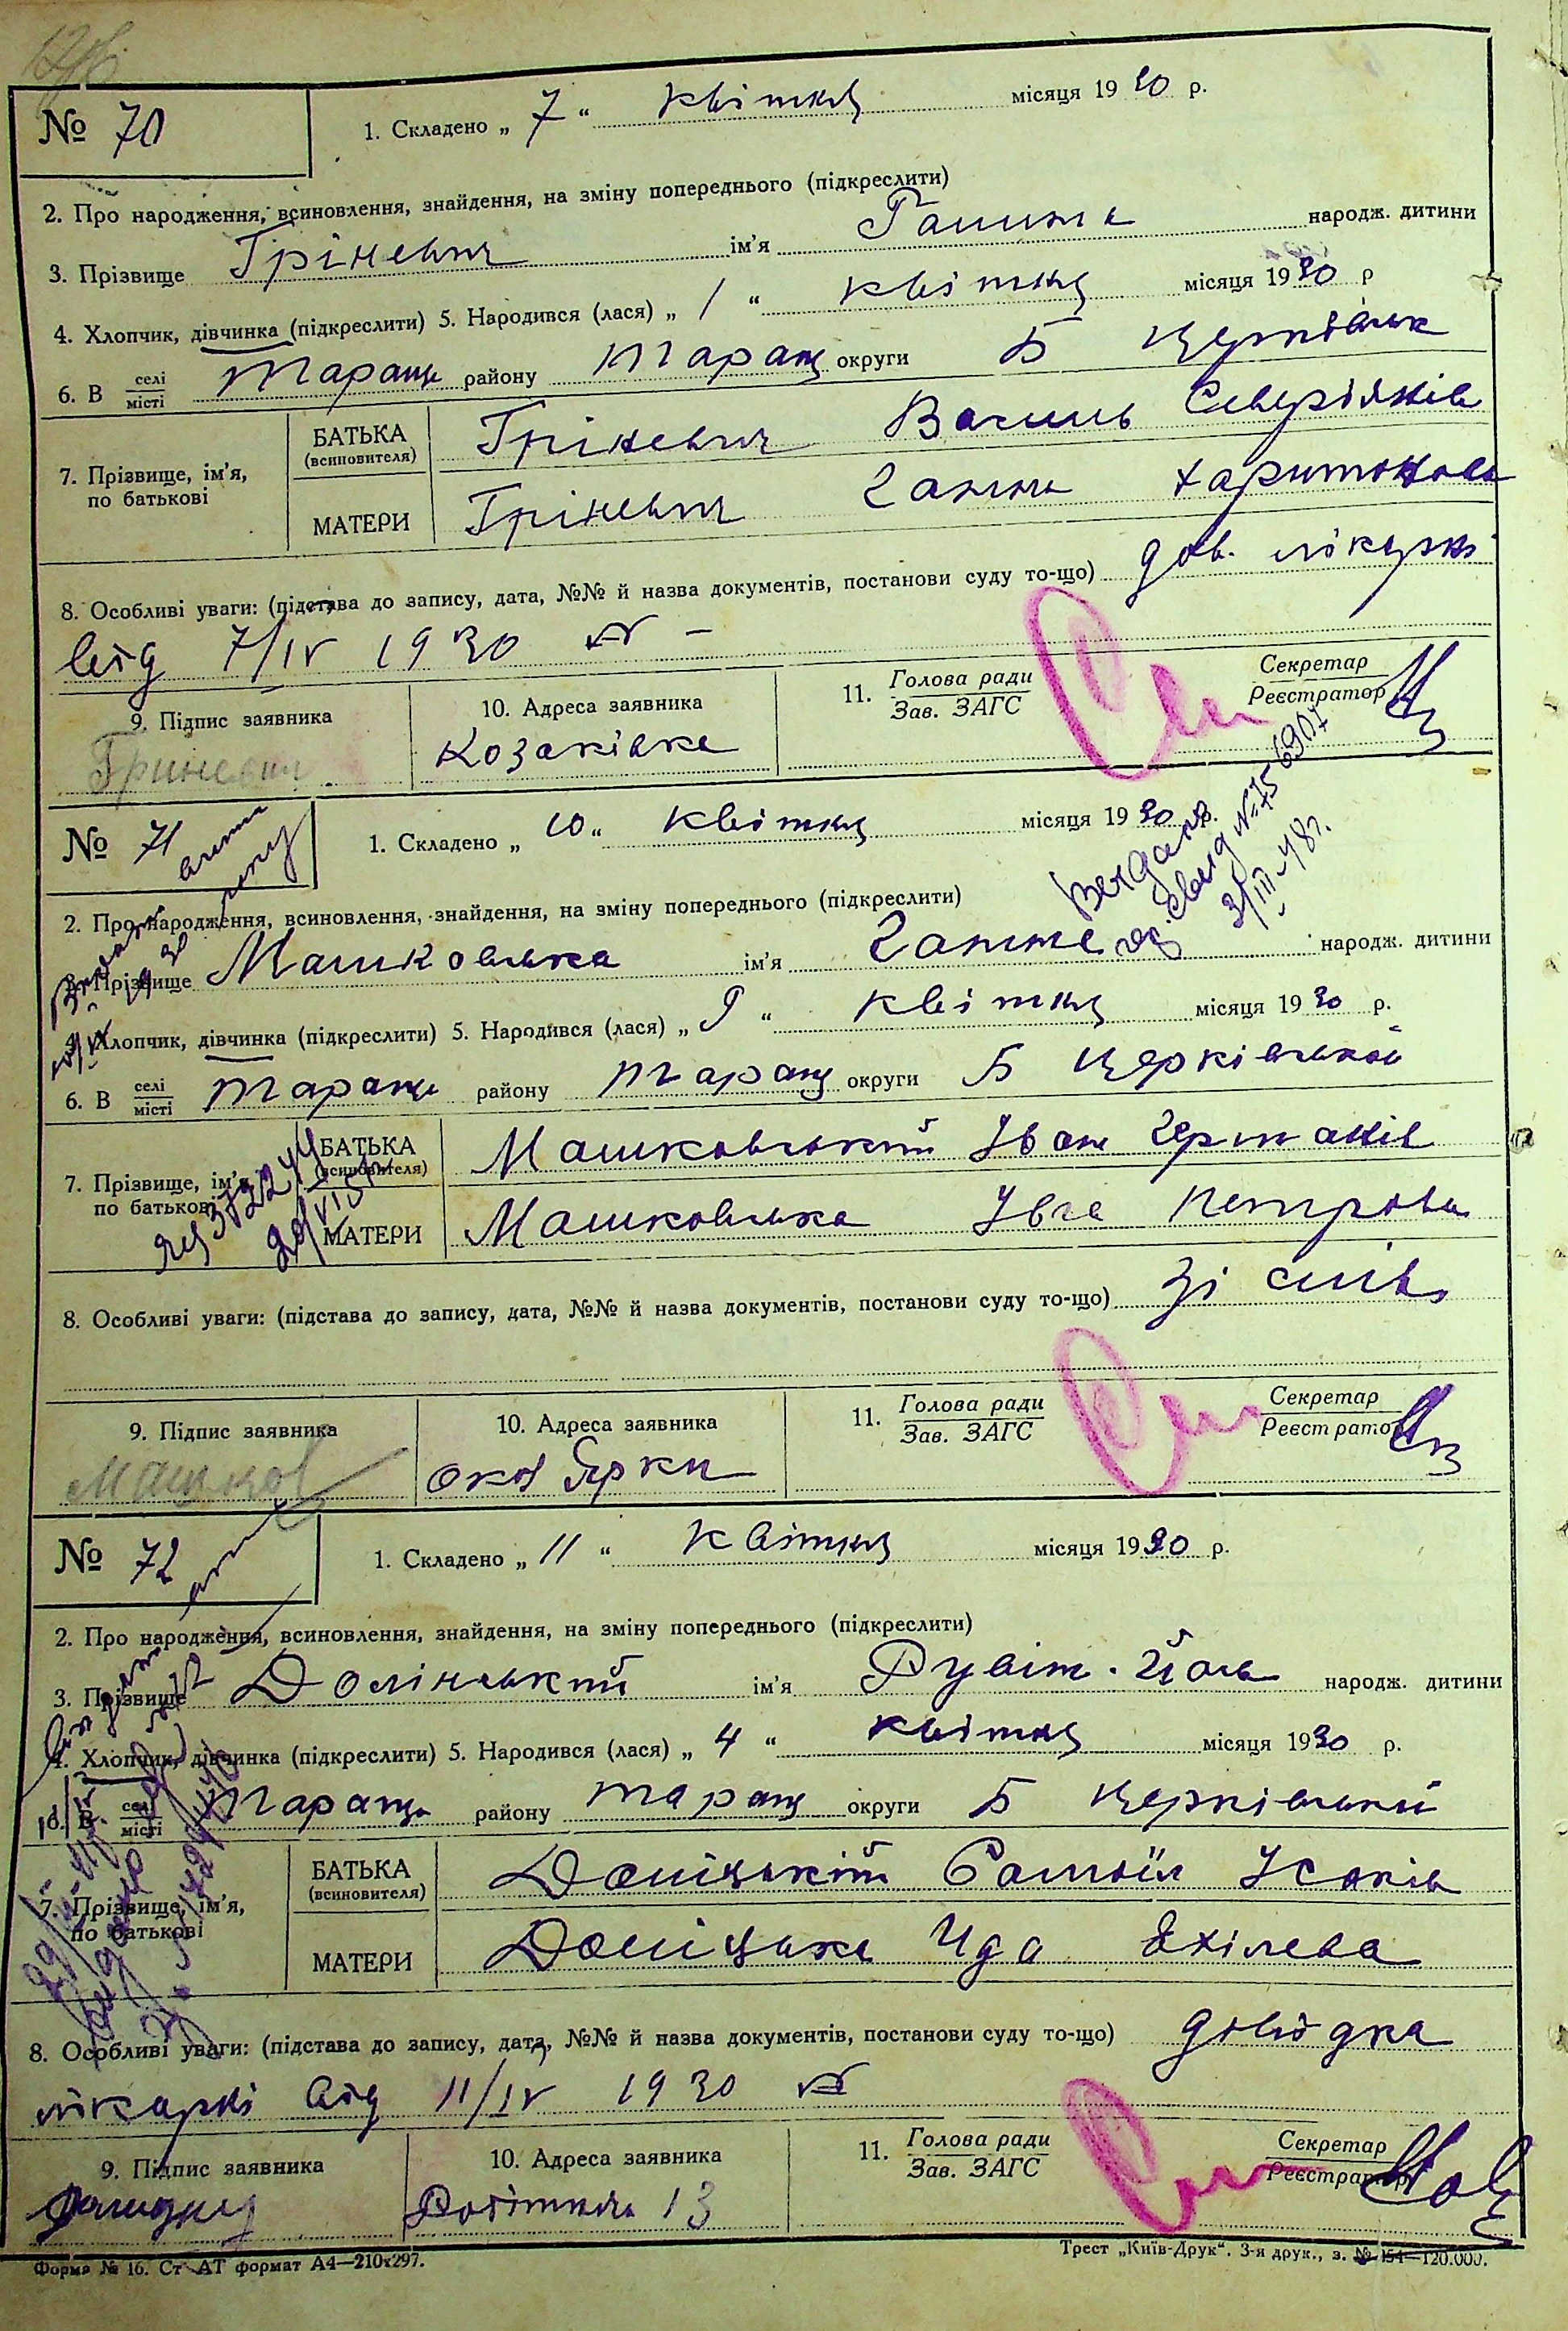 № 70
1. Складено „ 7 “ квітня місяця 1930 р.
2. Про народження, всиновлення, знайдення, на зміну попереднього (підкреслити)
3. Прізвище Гріневич ім'я Галина народж. дитини
4. Хлопчик, дівчинка (підкреслити) 5. Народився (лася) „ 1 “ квітня місяця 1930 р
6. В селі місті Тараща району Таращ округи Б Церківськ
7. Прізвище, ім'я, по батькові
БАТЬКА (всиновителя) Гріневич Василь Северіянів
МАТЕРИ Гріневич Ганна Харитонова
8. Особливі уваги: (підстава до запису, дата, №№ й назва документів, постанови суду то-що) дов. лікарні
від 7/IV 1930
9. Підпис заявника 10. Адреса заявника 11. Голова ради Зав. ЗАГС Секретар Реєстратор
Гриневич Козаківка
№ 71
1. Складено „ 10 “ квітня місяця 1930 р.
2. Про народження, всиновлення, знайдення, на зміну попереднього (підкреслити)
3. Прізвище Машковська ім'я Ганна народж. дитини
4. Хлопчик, дівчинка (підкреслити) 5. Народився (лася) „ “ квітня місяця 1930 р.
6. В селі місті Тараща району Таращ округи Б Церківської
7. Прізвище, ім'я, по батькові
БАТЬКА (всиновителя) Машковський Іван Германів
МАТЕРИ Машковська Івга Петрова
8. Особливі уваги: (підстава до запису, дата, №№ й назва документів, постанови суду то-що) зі слів
9. Підпис заявника 10. Адреса заявника 11. Голова ради Зав. ЗАГС Секретар Реєстратор
Машков Ярки
№ 72
1. Складено „ 11 “ квітня місяця 1930 р.
2. Про народження, всиновлення, знайдення, на зміну попереднього (підкреслити)
3. Прізвище Долінський ім'я народж. дитини
4. Хлопчик, дівчинка (підкреслити) 5. Народився (лася) „ 4 “ квітня місяця 1930 р.
6. В селі місті Тараща району Таращ округи Б Церківський
7. Прізвище, ім'я, по батькові
БАТЬКА (всиновителя) Самоїл Ісаків
МАТЕРИ Ида
8. Особливі уваги: (підстава до запису, дата, №№ й назва документів, постанови суду то-що) довідка
лікаркі від 11/IV 1930
9. Підпис заявника 10. Адреса заявника 11. Голова ради Зав. ЗАГС Секретар Реєстратор
13
Форма № 16. Ст АТ формат А4—210х297. Трест „Київ-Друк“. 3-я друк., з. № 154—120.000.